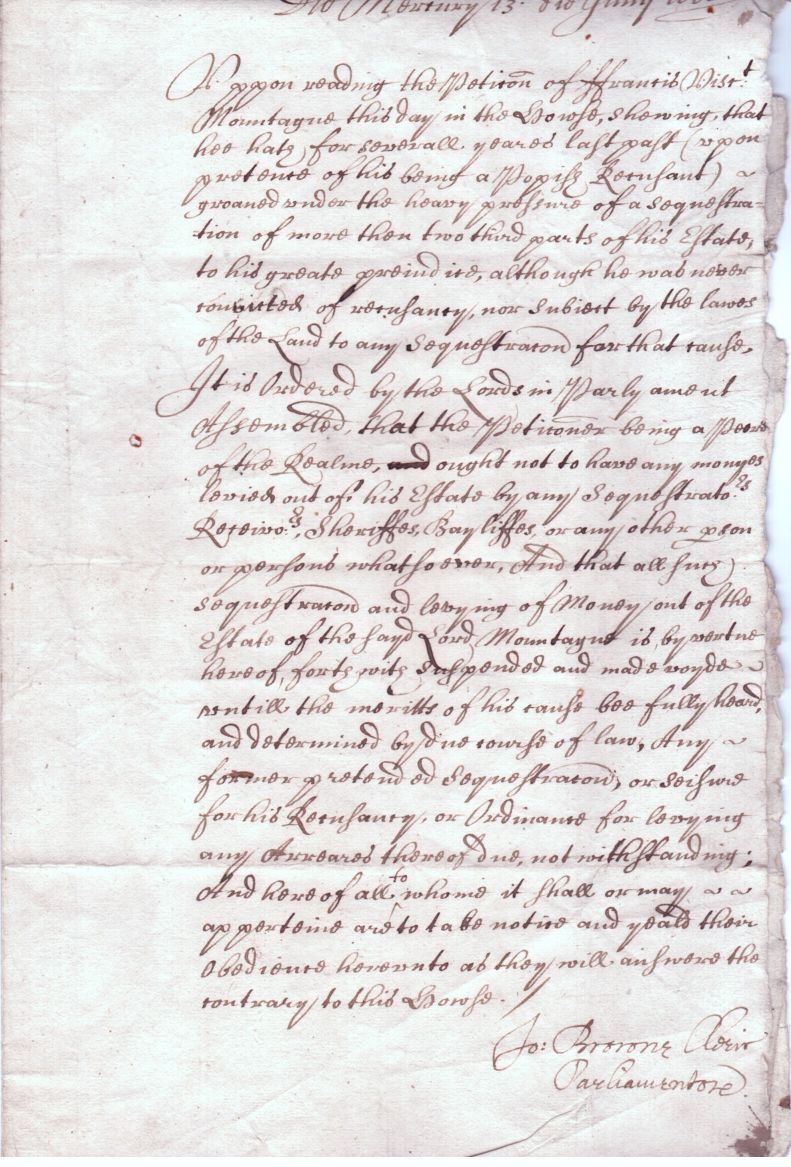 Die Mercurij 13. die Junij
Vppon reading the Peticon of ffrancis Visct.
Mountague this day in the Howse, shewing, that
hee hath for severall yeares last past (vpon
pretence of his being a Popish Recusant) ~
groaned vnder the heavy pressure of a sequestra-
tion of more then two third parts of his Estate,
to his greate preiudice, although he was never
convicted of recusancy, nor subiect by the lawes
of the Land to any Sequestracon for that cause,
It is Ordered by the Lords in Parlyament
Assembled, that the Peticoner being a Peere
of the Realme, and ought not to have any monyes
levied out of his Estate by any Sequestrators
Receivors, Sheriffes, Bayliffes, or any other pson
or persons whatsoever, And that all such
sequestracon and levying of Money out of the
Estate of the sayd Lord Mountague is, by vertue
hereof, forthwith suspended and made voyde ~
vntill the meritts of his cause bee fully heard,
and determined by due course of law, Any ~
former pretended Sequestracon, or seisure
for his Recusancy, or Ordinance for levying
any Arreares thereof due, notwithstanding;
And hereof all to whome it shall or may ~ ~
apperteine are to take notice and yeald their
Obedience herevnto as they will answere the
contrary to this Howse.
Jo: Browne Cleric
Parliamentorz